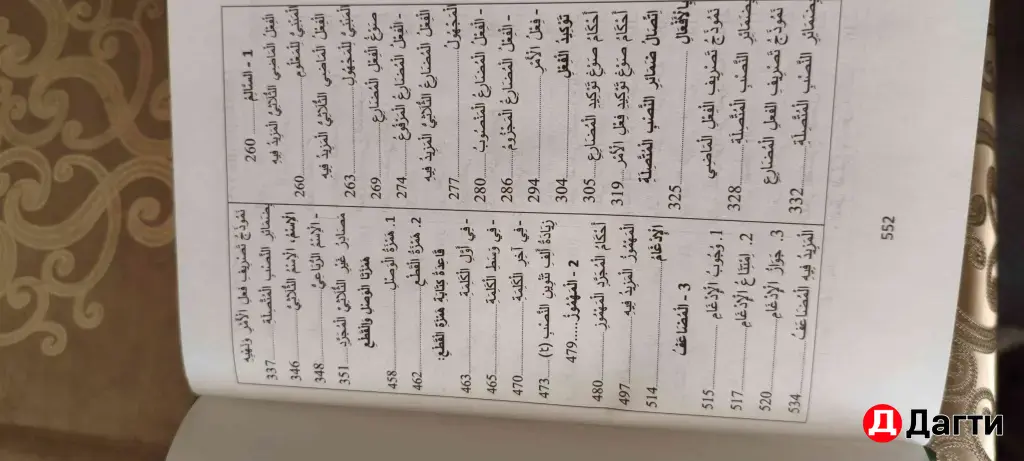 1 - السَّالِمُ ........ 260
الفِعْلُ المَاضِي الثُّلَاثِيُّ المَزِيدُ فِيهِ
المَبْنِيُّ لِلْمَعْلُومِ ........ 260
الفِعْلُ المَاضِي الثُّلَاثِيُّ المَزِيدُ فِيهِ
المَبْنِيُّ لِلْمَجْهُولِ ........ 263
صَوْغُ الفِعْلِ المُضَارِعِ ........ 269
- الفِعْلُ المُضَارِعُ المَرْفُوعُ ........ 274
الفِعْلُ المُضَارِعُ الثُّلَاثِيُّ المَزِيدُ فِيهِ
المَجْهُولُ ........ 277
- الفِعْلُ المُضَارِعُ المَنْصُوبُ ........ 280
- الفِعْلُ المُضَارِعُ المَجْزُومُ ........ 286
- فِعْلُ الأَمْرِ ........ 294
تَوْكِيدُ الفِعْلِ ........ 304
أَحْكَامُ صَوْغِ تَوْكِيدِ المُضَارِعِ ........ 305
أَحْكَامُ صَوْغِ تَوْكِيدِ فِعْلِ الأَمْرِ ........ 319
اِتِّصَالُ ضَمَائِرِ النَّصْبِ المُتَّصِلَةِ
بِالأَفْعَالِ ........ 325
نَمُوذَجُ تَصْرِيفِ الفِعْلِ المَاضِي
بِضَمَائِرِ النَّصْبِ المُتَّصِلَةِ ........ 328
نَمُوذَجُ تَصْرِيفِ الفِعْلِ المُضَارِعِ
بِضَمَائِرِ النَّصْبِ المُتَّصِلَةِ ........ 332
نَمُوذَجُ تَصْرِيفِ فِعْلِ الأَمْرِ وَنَهْيِهِ
بِضَمَائِرِ النَّصْبِ المُتَّصِلَةِ ........ 337
الاِسْمُ، الاِسْمُ الثُّلَاثِيُّ ........ 346
- الاِسْمُ الرُّبَاعِيُّ ........ 348
مَصَادِرُ غَيْرِ الثُّلَاثِيِّ المُجَرَّدِ ........ 351
هَمْزَتَا الوَصْلِ وَالقَطْعِ
1. هَمْزَةُ الوَصْلِ ........ 458
2. هَمْزَةُ القَطْعِ ........ 462
قَاعِدَةُ كِتَابَةِ هَمْزَةِ القَطْعِ:
- فِي أَوَّلِ الكَلِمَةِ ........ 463
- فِي وَسَطِ الكَلِمَةِ ........ 465
- فِي آخِرِ الكَلِمَةِ ........ 470
زِيَادَةُ أَلِفِ تَنْوِينِ النَّصْبِ (ا) ........ 473
2 - المَهْمُوزُ ........ 479
أَحْكَامُ المُجَرَّدِ المَهْمُوزِ ........ 480
المَهْمُوزُ المَزِيدُ فِيهِ ........ 497
الإِدْغَامُ ........ 514
3 - المُضَاعَفُ
1. وُجُوبُ الإِدْغَامِ ........ 515
2. اِمْتِنَاعُ الإِدْغَامِ ........ 517
3. جَوَازُ الإِدْغَامِ ........ 520
المَزِيدُ فِيهِ المُضَاعَفُ ........ 534
552
Дагти